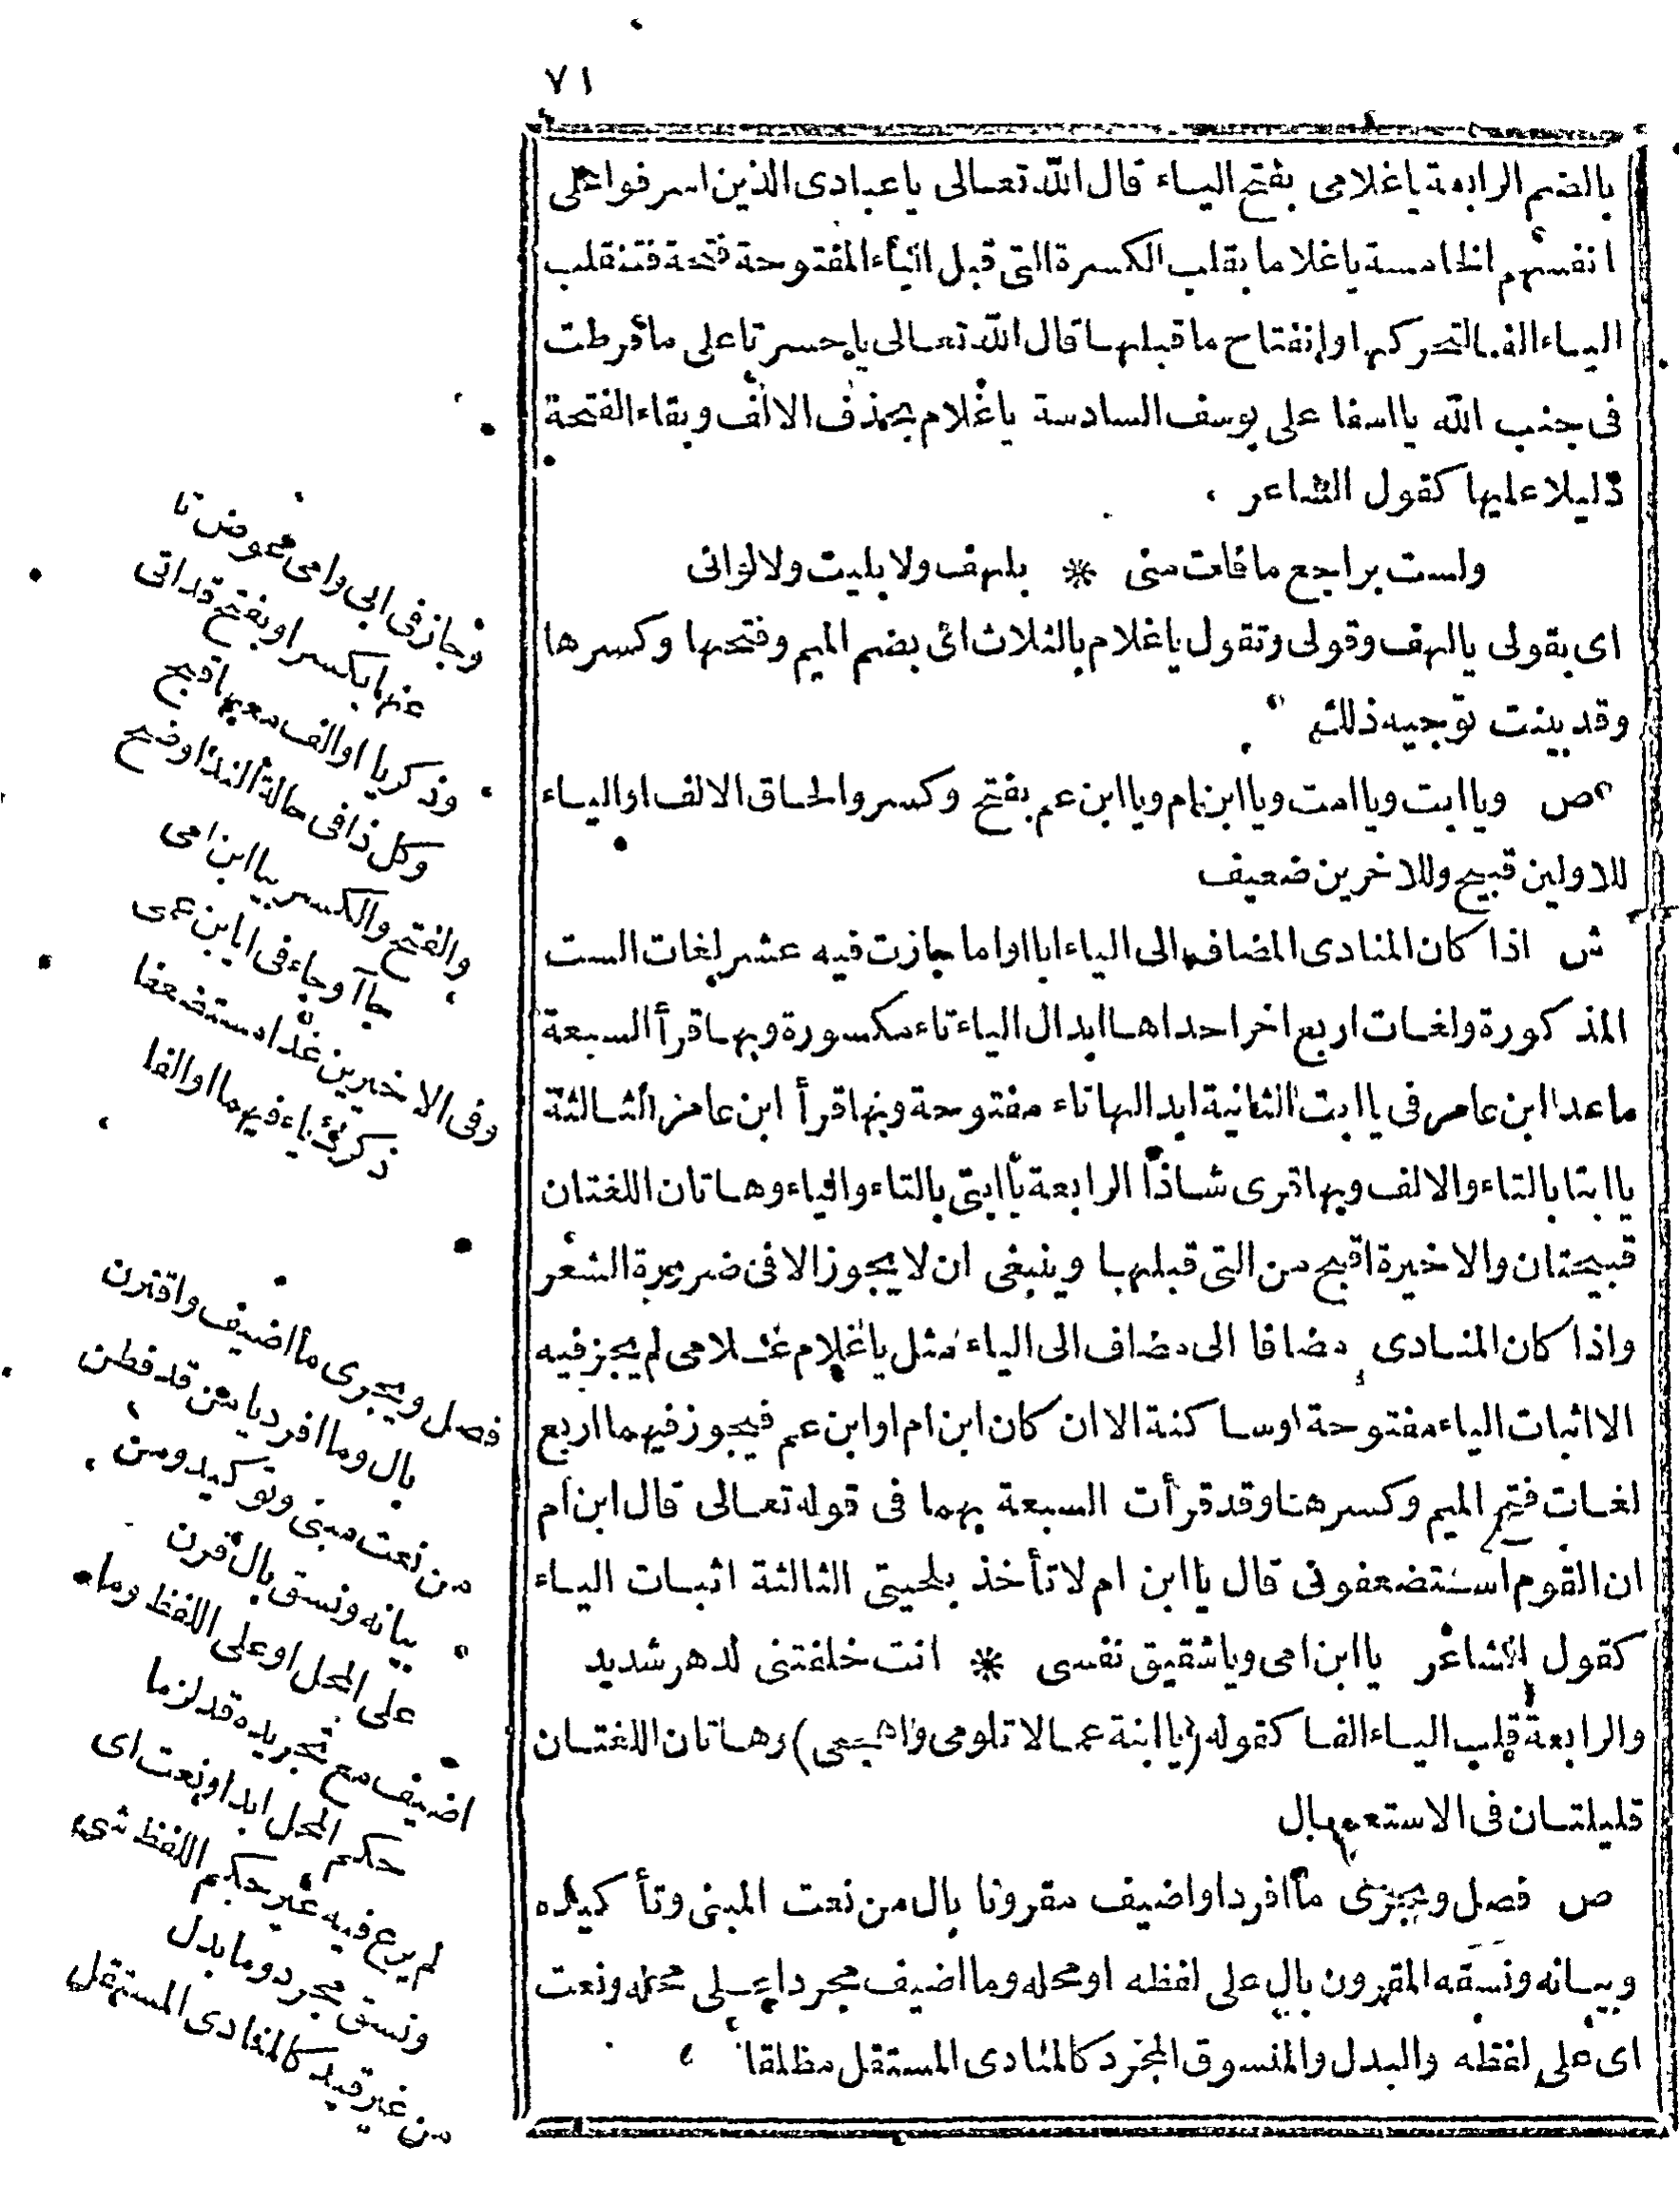 ٧١
بالضم الرابعة ياغلامى بفتح اليـاء قال الله تعـالى ياعبادى الذين اسرفوا على
انفسهم الخامسة ياغلاما بقلب الكسرة التى قبل الياء المفتوحة فتحة فتنقلب
اليـاء الفـا لتحركها وانفتاح ماقبلهـا قال الله تعـالى ياحسرتا على مافرطت
فى جنب الله يااسفا على يوسف السادسة ياغلام بحذف الالف وبقاء الفتحة
دليلا عليها كقول الشاعر
ولست براجع مافات منى * بلهف ولا بليت ولا لوانى
اى بقولى يالهف وقولى وتقول ياغلام بالثلاث اى بضم الميم وفتحها وكسرها
وقد بينت توجيه ذلك
ص وياابت وياامت وياابن ام وياابن عم بفتح وكسر والحاق الالف او اليـاء
للاولين قبيح وللاخرين ضعيف
ش اذا كان المنادى المضاف الى الياء ابا او اما جازت فيه عشر لغات الست
المذكورة ولغـات اربع اخر احداهـا ابدال الياء تاء مكسورة وبهـا قرأ السبعة
ماعدا ابن عامر فى ياابت الثانية ابدالها تاء مفتوحة وبها قرأ ابن عامر الثـالثة
ياابتا بالتاء والالف وبها قرى شـاذا الرابعة ياابتى بالتاء والياء وهـاتان اللغتان
قبيحتان والاخيرة اقبح من التى قبلهـا وينبغى ان لايجوز الا فى ضرورة الشعر
واذا كان المنـادى مضافا الى مضاف الى الياء مثل ياغلام غـلامى لم يجز فيه
الا اثبات الياء مفتوحة اوسـاكنة الا ان كان ابن ام او ابن عم فيجوز فيهما اربع
لغـات فتح الميم وكسرهـا وقد قرأت السبعة بهما فى قوله تعـالى قال ابن ام
ان القوم استضعفونى قال ياابن ام لاتأخذ بلحيتى الثالثة اثبـات اليـاء
كقول الشاعر ياابن امى وياشقيق نفسى * انت خلفتنى لدهر شديد
والرابعة قلب اليـاء الفـا كقوله (ياابنة عمـا لاتلومى واهجعى) وهـاتان اللغتـان
قليلتـان فى الاستعمـال
ص فصل ويجرى ماافرد او اضيف مقرونا بال من نعت المبنى وتأكيده
وبيـانه ونسقه المقرون بال على لفظه او محله وما اضيف مجردا عـلى محله ونعت
اى على لفظه والبدل والمنسوق المجرد كالمنادى المستقل مطلقا
وجاز فى ابى وامى عوض تا
عنها بكسر او بفتح قد اتى
وذكر يا او الف معها قبح
وكل ذا فى حالة الندا وضح
والفتح والكسر بيا ابن امى
جاآ وجاء فى ايا ابن عمى
وفى الاخيرين غدا مستضعفا
ذكرك ياء فيهما او الفا
فصل ويجرى مااضيف واقترن
بال وما افرد يا من قد فطن
من نعت مبنى وتوكيد ومن
بيانه ونسق بال قرن
على المحل او على اللفظ وما
اضيف مع تجريده قد لزما
حكم المحل ابدا ونعت اى
لم يرع فيه غير حكم اللفظ شى
ونسق مجرد وما بدل
من غير قيد كالمنادى المستقل